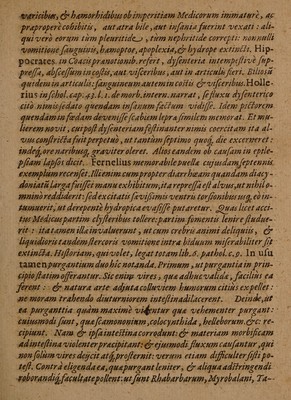 varicibus, & hæmorrhidibus ob imperitiam Medicorum immaturè, ac
præproperè cohibitis, aut atra bile, aut insania fuerint vexati: ali-
qui verò eorum tùm pleuritide, tum nephritide correpti: nonnulli
vomitione sanguinis, hæmoptoe, apoplexia, & hydrope extincti. Hip-
pocrates in Coacis prænotionib. refert, dysenteria intempestivè sup-
pressa, abscessum in costis, aut visceribus, aut in articulis fieri. Biliosũ
quidem in articulis: sanguineum autem in costis & visceribus. Holle-
rius in schol. cap. l. i. de morb. intern. narrat, se fluxu dysenterico
citò nimis sedato quendam insanum factum vidisse. Idem pictorem
quendam in fœdam devenisse scabiem lepræ similem memorat. Et mu-
lierem novit, cui post dysenteriam festinanter nimis coercitam ita al-
vus constricta fuit perpetuò, ut tantùm septimo quoq; die excerneret:
indeq; ore naribusq; graviter oleret. Alias eandem ob causam in epile-
psiam lapsos dicit. Fernelius memorabile puellæ cujusdam septennis
exemplum recruset. Illi enim cum propter diarrhœam quandam diacy-
doniatũ larga fuisset manu exhibitum, ita repressa est alvus, ut nihil o-
mninò redderet: sed excitatis sævissimis ventris torsionibus usq; eò in-
tumuerit, ut derepentè hydropica evasisse putaretur. Quæ licet acci-
tus Medicus partim clysteribus tollere; partim fomentis lenire studue-
rit: ita tamen illa invaluerunt, ut cum crebris animi deliquiis, &
liquidioris tandem stercoris vomitione intra biduum miserabiliter sit
extincta. Historiam, qui volet, legat totam lib. 6. pathol. c. 9. In usu
tamen purgantium duo hîc notanda. Primum, ut purgantia in prin-
cipio statim offerantur. Sic enim vires, quæ adhuc validæ, facilius ea
ferent: & natura arte adjuta colluviem humorum citius expellet:
ne moram trahendo diuturniorem intestina dilacerent. Deinde, ut
ea purgantia quàm maximè vitentur quæ vehementer purgant:
cujusmodi sunt, quæ scamononium, colocynthida, helleborum, & c: re-
cipiunt. Nam & ipsa intestina corrodunt: & materiam morbificam
ad intestina violenter præcipitant: & ejusmodi fluxum causantur, qui
non solùm vires dejicit atq; prosternit: verùm etiam difficulter sisti po-
test. Contrà eligenda ea, quæ purgent leniter, & aliqua adstringendi
roborandiq; facultate pollent: ut sunt Rhabarbarum, Myrobalani, Ta-